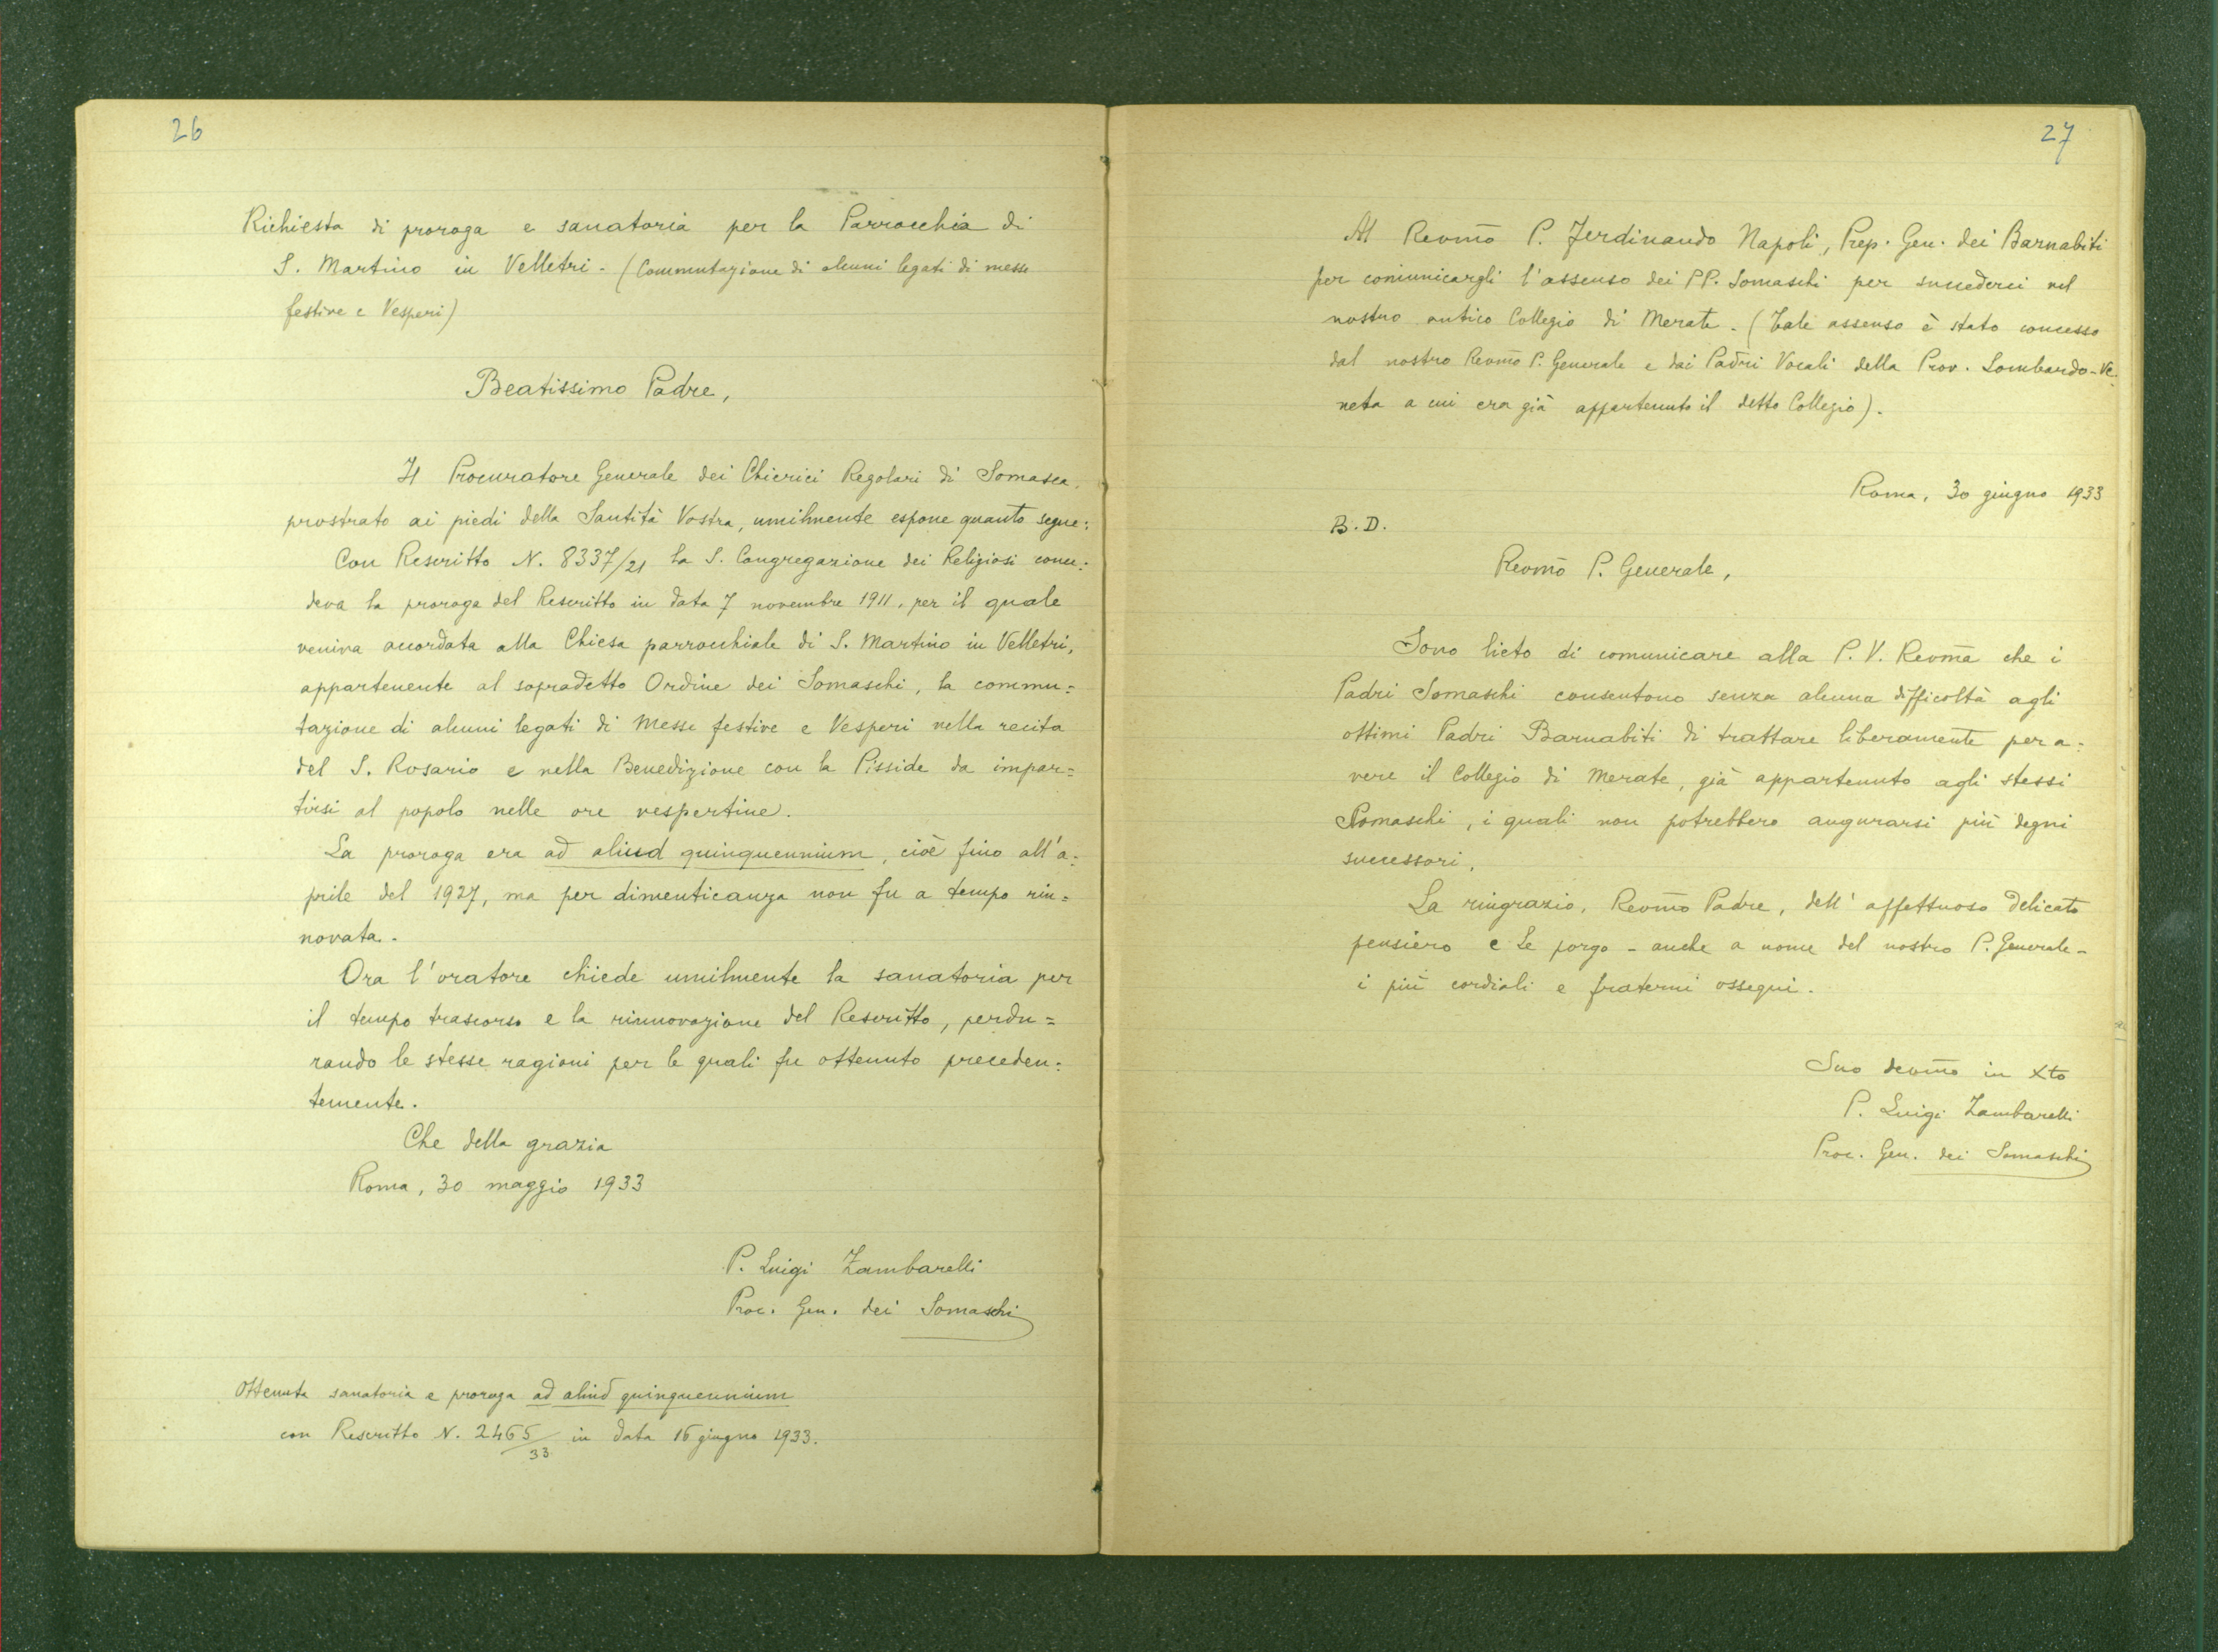 26
Richiesta di proroga e sanatoria per la Parrocchia di
S. Martino in Velletri - (Commutazione di alcuni legati di messe
festive e Vesperi)
Beatissimo Padre,
Il Procuratore Generale dei Chierici Regolari di Somasca,
prostrato ai piedi della Santità Vostra, umilmente espone quanto segue:
Con Rescritto N. 8337/21 la S. Congregazione dei Religiosi conce:
deva la proroga del Rescritto in data 7 novembre 1911, per il quale
veniva accordata alla Chiesa parrocchiale di S. Martino in Velletri,
appartenente al sopradetto Ordine dei Somaschi, la commu=
tazione di alcuni legati di Messe festive e Vesperi nella recita
del S. Rosario e nella Benedizione con la Pisside da impar=
tirsi al popolo nelle ore vespertine.
La proroga era ad aliud quinquennium, cioè fino all'a:
prile del 1927, ma per dimenticanza non fu a tempo rin=
novata.
Ora l'oratore chiede umilmente la sanatoria per
il tempo trascorso e la rinnovazione del Rescritto, perdu=
rando le stesse ragioni per le quali fu ottenuto preceden:
temente.
Che della grazia
Roma, 30 maggio 1933
P. Luigi Zambarelli
Proc. Gen. dei Somaschi
Ottenuta sanatoria e proroga ad aliud quinquennium
con Rescritto N. 2465/33 in data 16 giugno 1933.
27
Al Revmo P. Ferdinando Napoli, Prep. Gen. dei Barnabiti
per comunicargli l'assenso dei PP. Somaschi per succederci nel
nostro antico Collegio di Merate. (Tale assenso è stato concesso
dal nostro Revmo P. Generale e dai Padri Vocali della Prov. Lombardo-Ve
neta a cui era già appartenuto il detto Collegio).
Roma, 30 giugno 1933
B. D.
Revmo P. Generale,
Sono lieto di comunicare alla P. V. Revma che i
Padri Somaschi consentono senza alcuna difficoltà agli
ottimi Padri Barnabiti di trattare liberamente per a:
vere il Collegio di Merate, già appartenuto agli stessi
Somaschi, i quali non potrebbero augurarsi più degni
successori.
La ringrazio, Revmo Padre, dell' affettuoso delicato
pensiero e Le porgo - anche a nome del nostro P. Generale -
i più cordiali e fraterni ossequi.
Suo devmo in Xto
P. Luigi Zambarelli
Proc. Gen. dei Somaschi